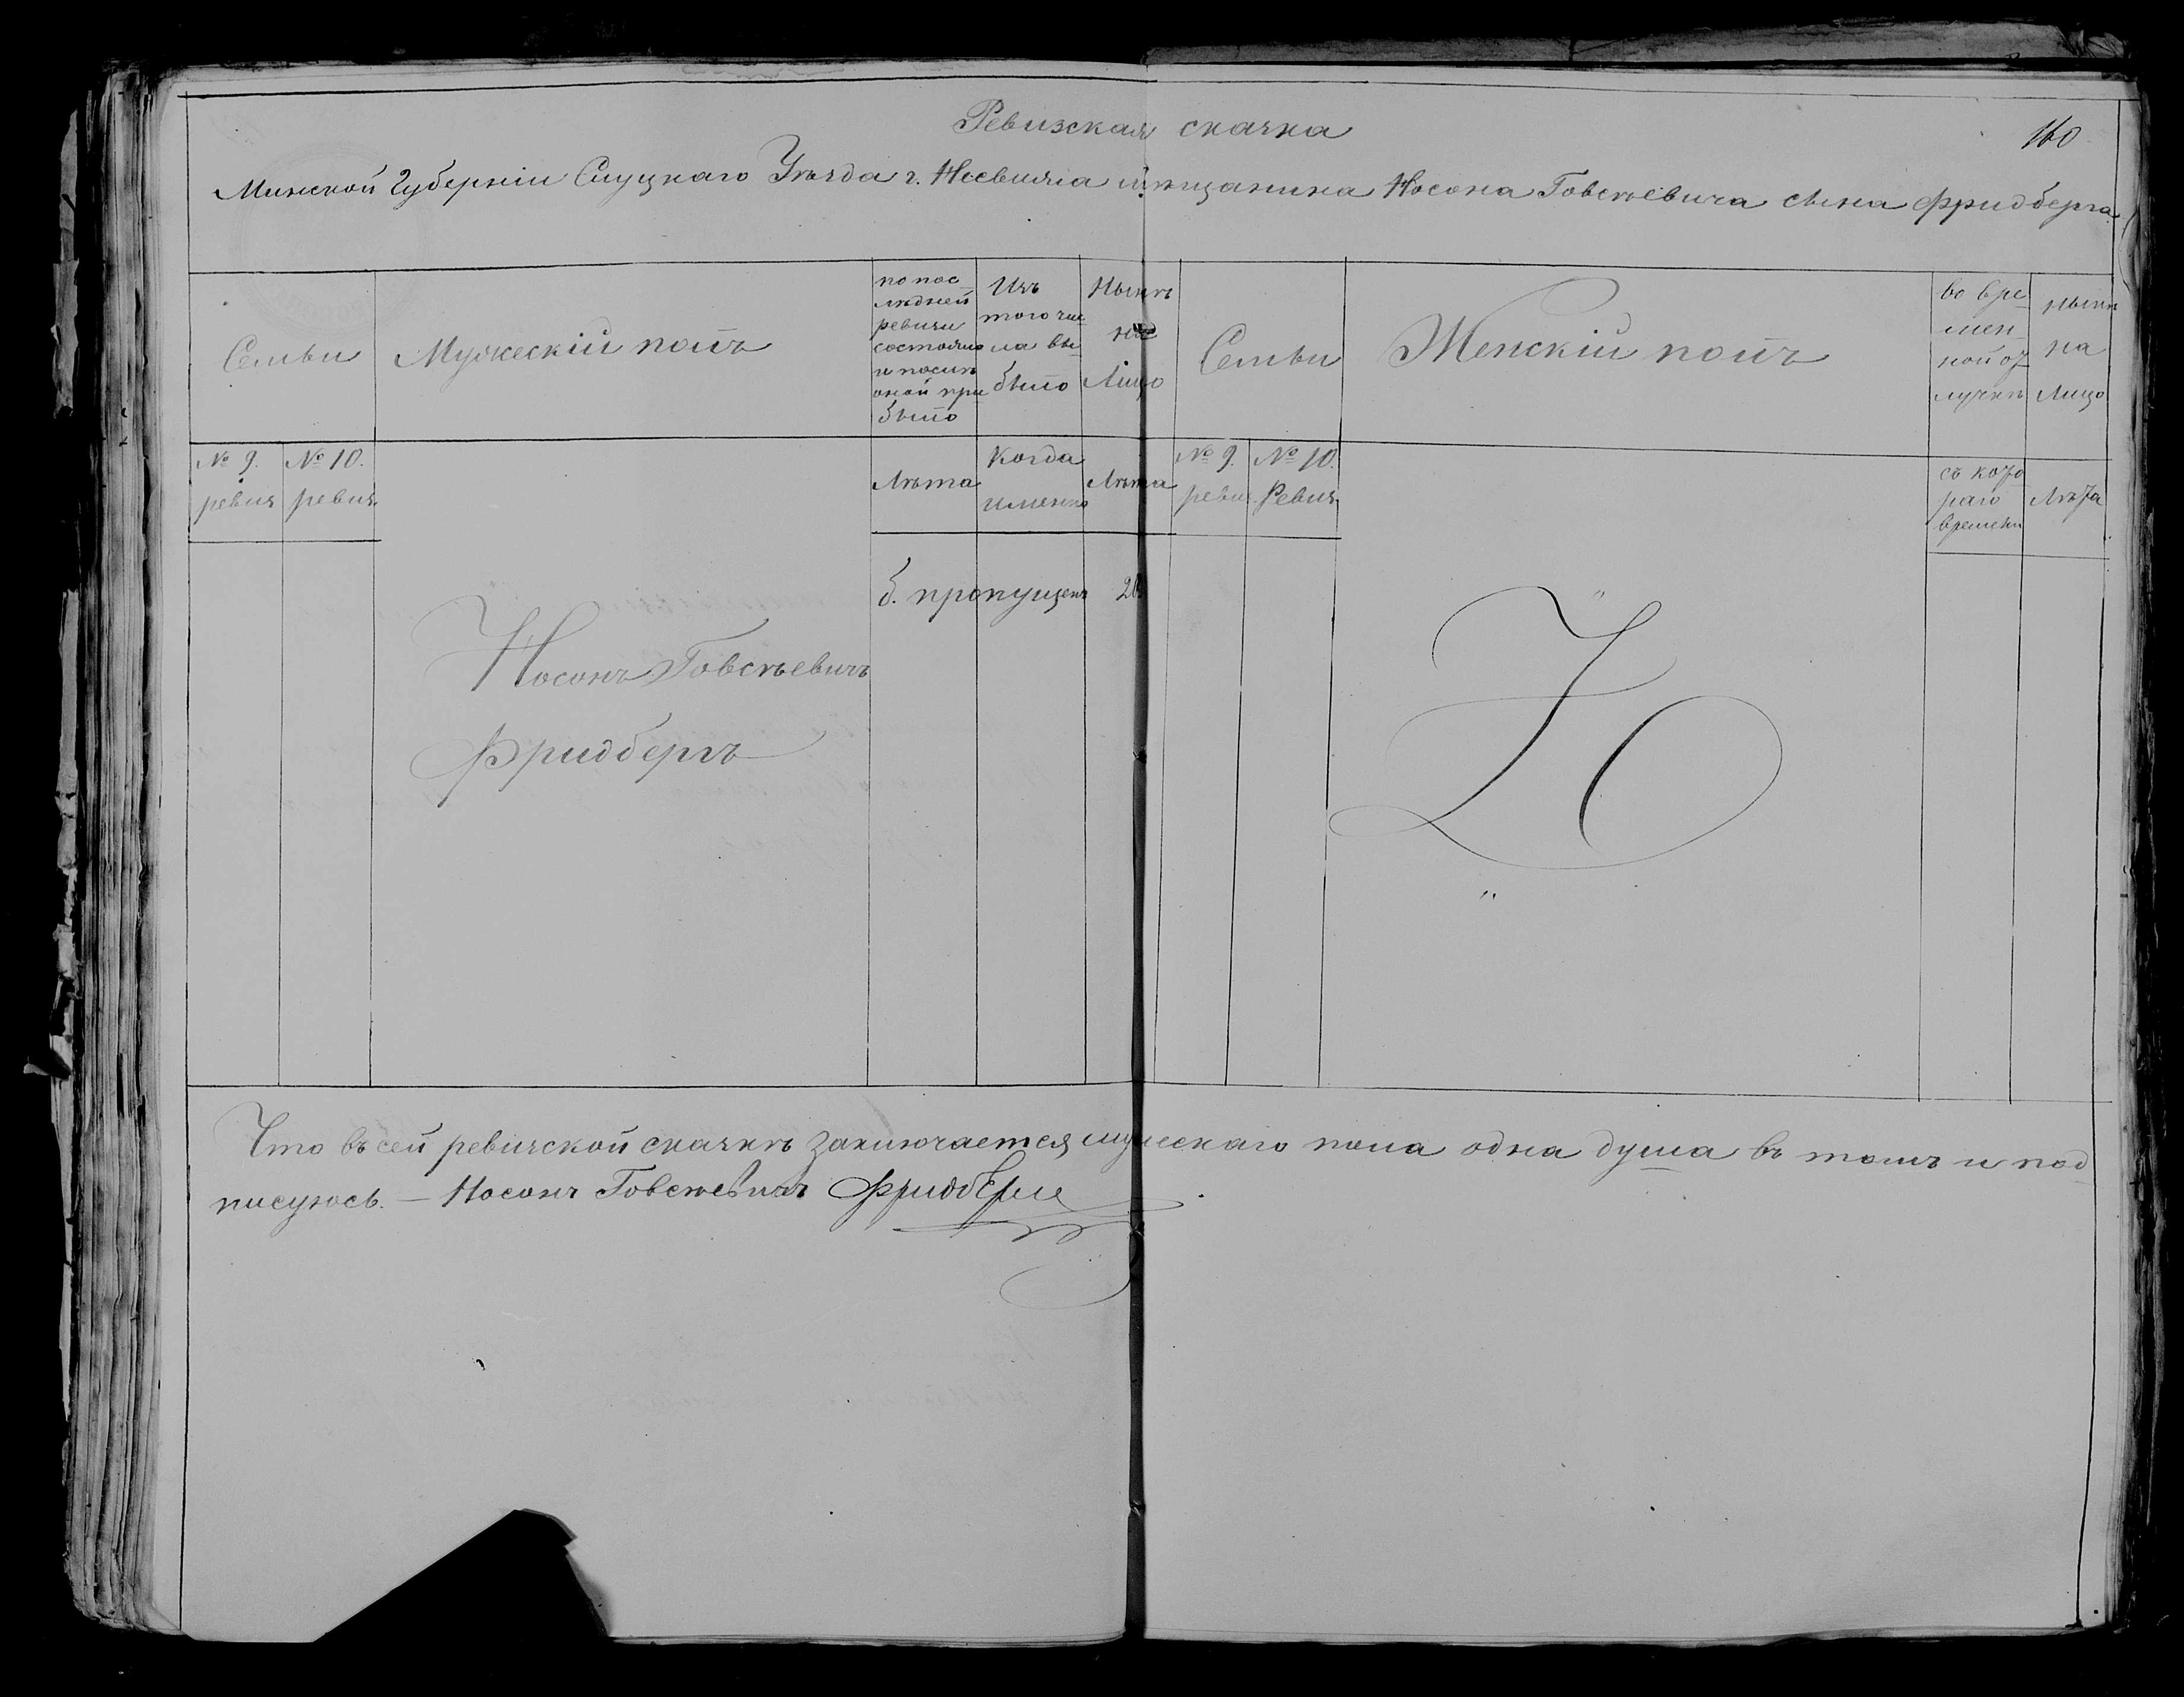 160
Ревизская сказка
Минской Губерніи Слуцкаго Уѣзда г. Несвижа мѣщанина Носона Говсѣевича сына Фридберга
Семьи
Мужескій полъ
по пос
лѣдней
ревизи
состояло
и послѣ
оной при
было
Изъ
того чис
ла вы
было
Нынѣ
на
Лицо
Семьи
Женскій полъ
во вре
мен
ной от
лучкѣ
нынѣ
на
Лицо
№ 9.
ревиз
№ 10.
ревиз
Лѣта
Когда
именно
Лѣта
№ 9.
ревиз
№ 10.
Ревиз
съ кото
раго
времени
Лѣта
б. пропущенъ
Носонъ Говсѣевичъ
Фридбергъ
Что въ сей ревизской сказкѣ заключается мужескаго пола одна душа въ томъ и под
писуюсь. — Носонъ Говсѣевичъ Фридберг